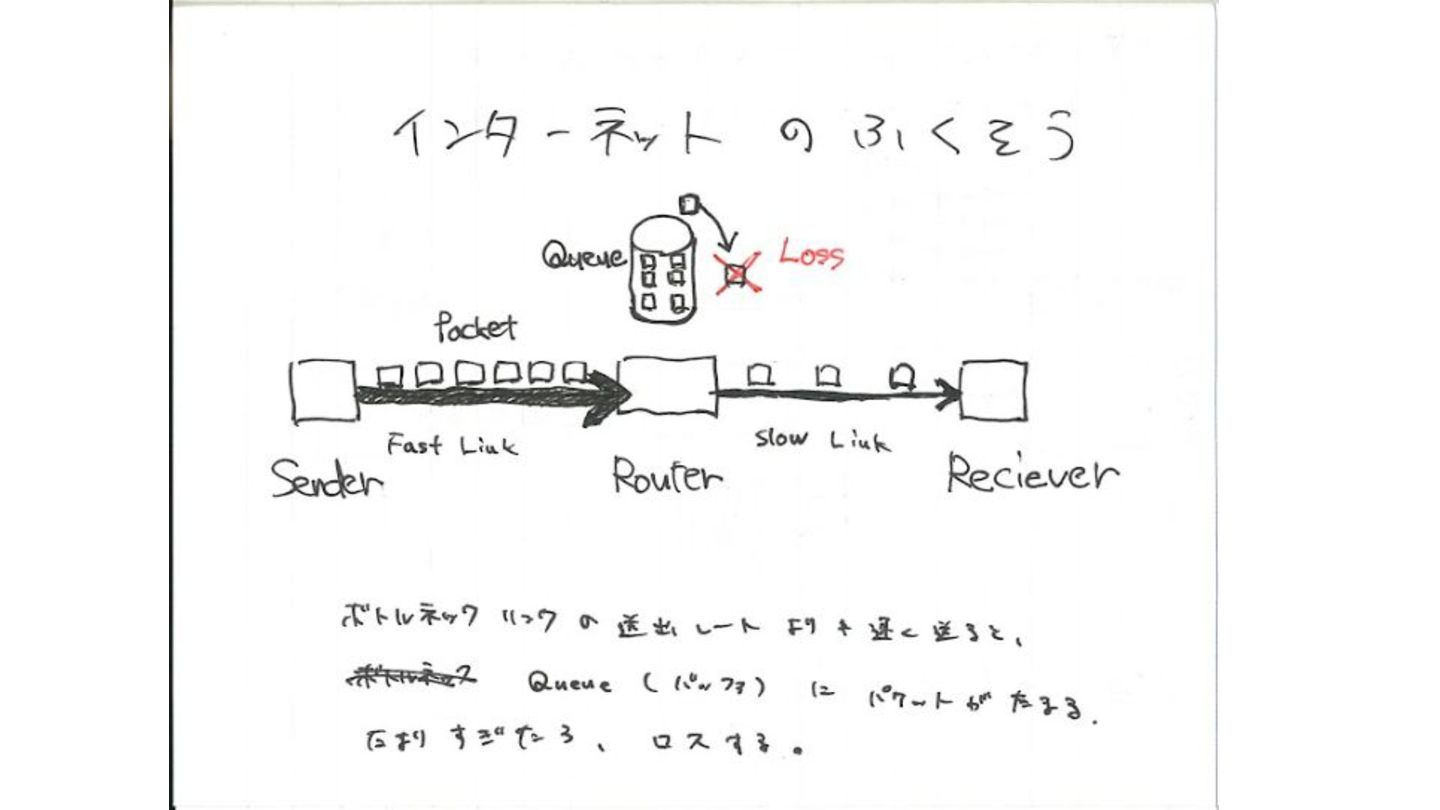 インターネットのふくそう
Queue
Loss
Packet
Fast Link
Slow Link
Sender
Router
Reciever
ボトルネックリンクの送出レートよりも速く送ると、
ボトルネック Queue (バッファ) にパケットがたまる.
たまりすぎたら、ロスする。